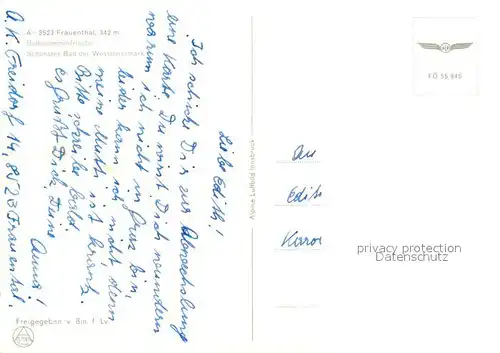 A - 8523 Frauenthal, 342 m
Schönstes Bad der Weststeiermark
Liebe Edith!
Ich schicke Dir zur Abwechslung
eine Karte. Du wirst Dich wundern
warum ich nicht in Graz bin,
leider kann ich nicht, denn
meine Mutti ist krank.
Bitte schreibe bald
es grüßt Dich Deine
Anna!
A. K. Freidorf 14, 8523 Frauental.
Freigegeben v. Bm. f. Lv.
Alpine Luftbild Innsbruck
FO 55 945
An
Edith
privacy protection
Datenschutz